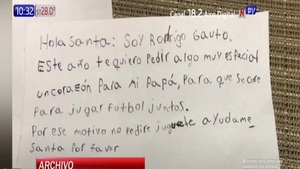 10:32
28.0°
18.2
NPY
Hola Santa: Soy Rodrigo Gauto.
Este año te quiero Pedir algo muy especial
un corazón Para mi Papá, Para que se cure
Para jugar Futbol juntos.
Por ese motivo no pedire juguete ayudame
Santa Por favor
ARCHIVO